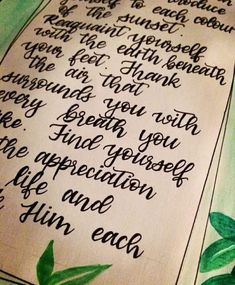 to each colour
of the sunset.
Reaquaint yourself
with the earth beneath
your feet. Thank
the air that
surrounds you with
every breath you
Find yourself
the appreciation
life and
Him each